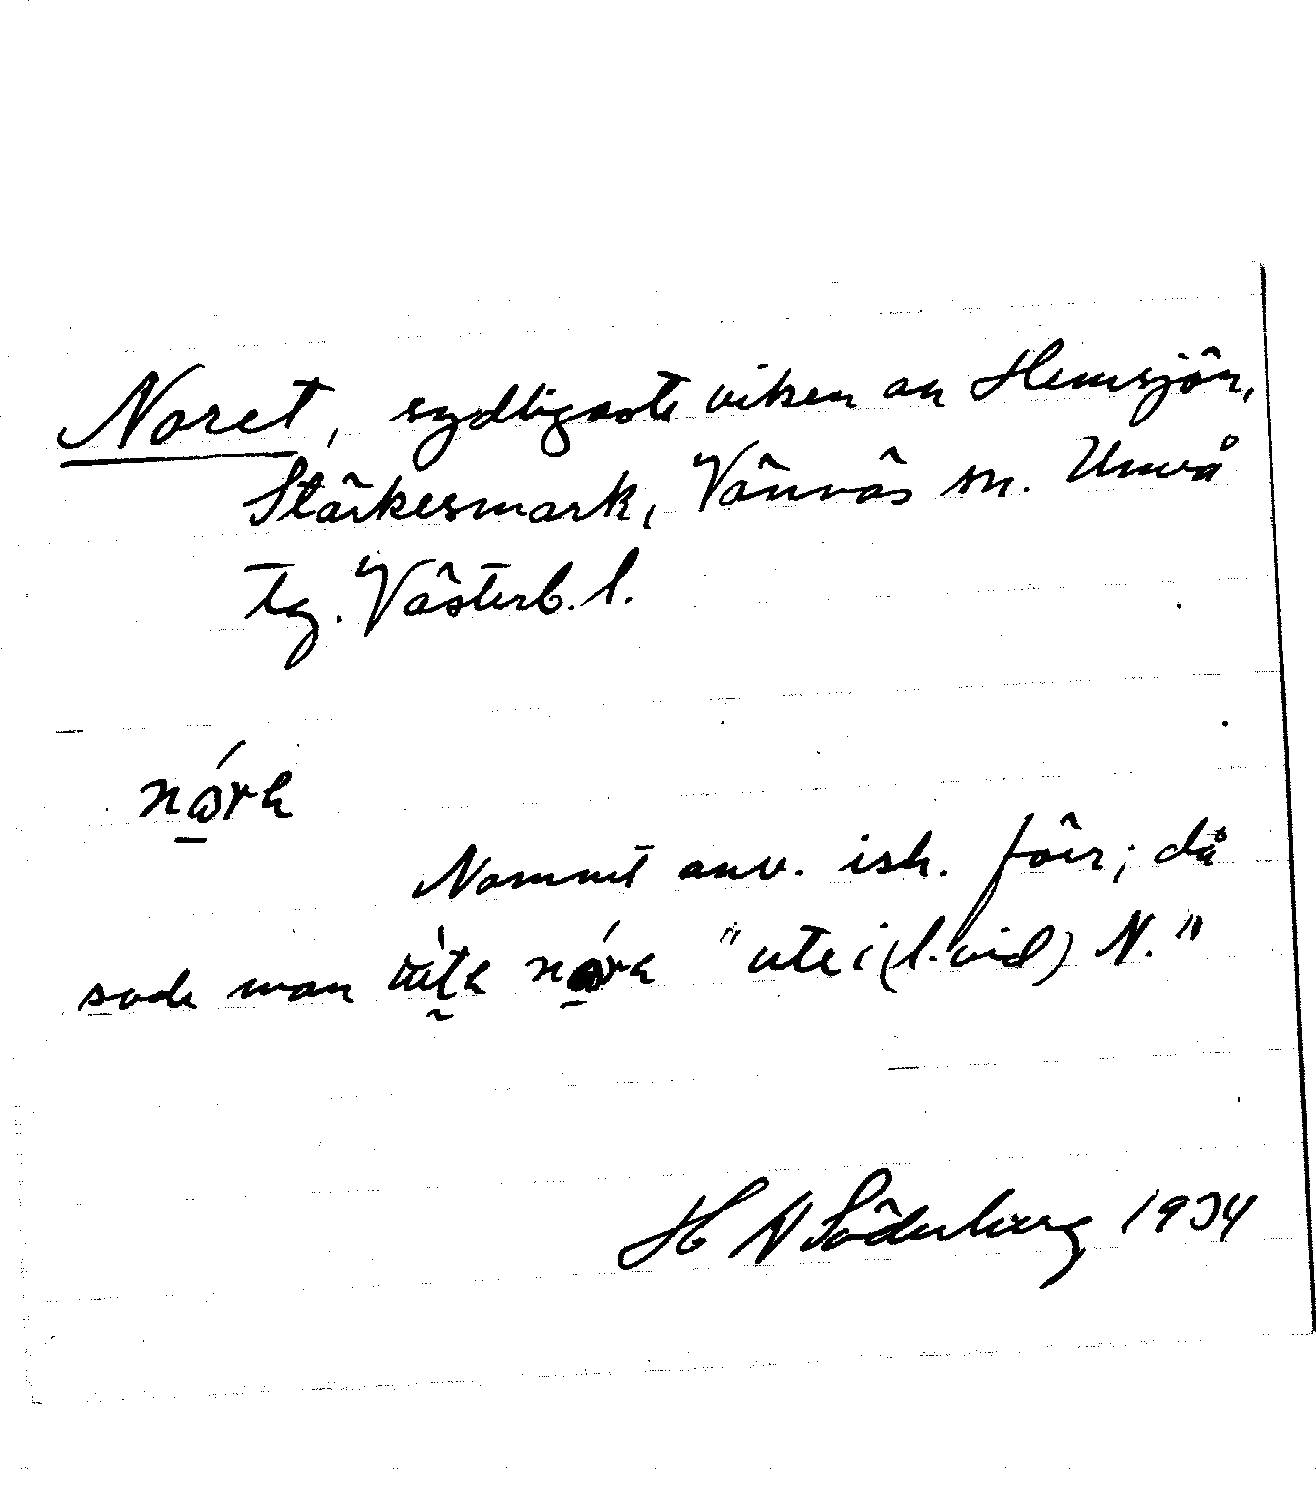 Noret, sydligaste viken av Hemsjön,
Stärkesmark, Vännäs sn. Umeå
tg. Västerb. l.
Namnet anv. ish. förr; då
sade man "ute i (l. vid) N."
H N Söderberg 1934